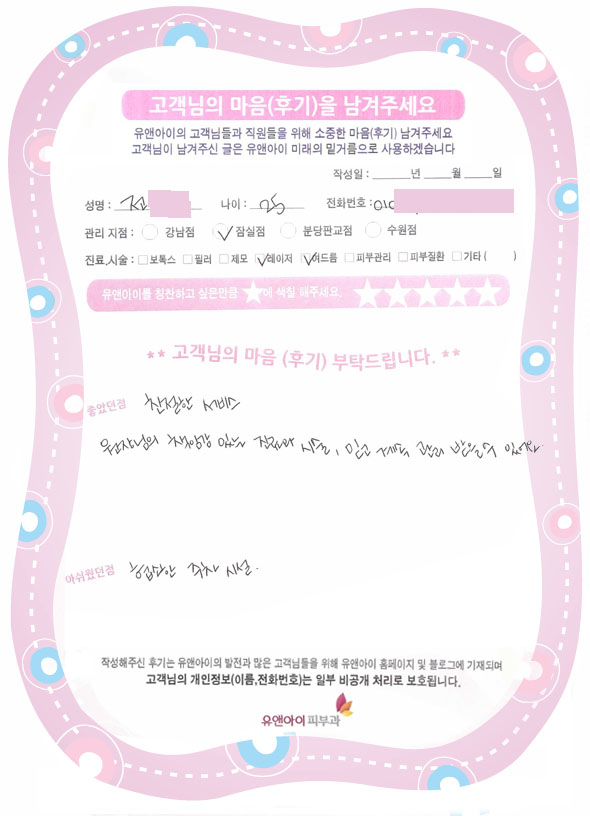 고객님의 마음(후기)을 남겨주세요
유앤아이의 고객님들과 직원들을 위해 소중한 마음(후기) 남겨주세요
고객님이 남겨주신 글은 유앤아이 미래의 밑거름으로 사용하겠습니다
작성일 : 년 월 일
성명 : 나이 : 25 전화번호 : 010
관리 지점 : 강남점 잠실점 분당판교점 수원점
진료,시술 : 보톡스 필러 제모 레이저 여드름 피부관리 피부질환 기타 ( )
유앤아이를 칭찬하고 싶은만큼 ★에 색칠 해주세요. ★★★★★
** 고객님의 마음 (후기) 부탁드립니다. **
좋았던점 친절한 서비스
원장님의 책임감 있는 진료와 시술, 믿고 계속 관리 받을 수 있어요.
아쉬웠던점 협소한 주차 시설.
작성해주신 후기는 유앤아이의 발전과 많은 고객님들을 위해 유앤아이 홈페이지 및 블로그에 기재되며
고객님의 개인정보(이름,전화번호)는 일부 비공개 처리로 보호됩니다.
유앤아이 피부과